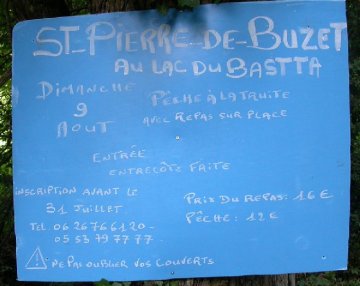 ST-PIERRE-DE-BUZET
AU LAC DU BASTTA
DIMANCHE
9
AOUT
PÊCHE À LA TRUITE
AVEC REPAS SUR PLACE
ENTRÉE
ENTRECÔTE FRITE
INSCRIPTION AVANT LE
31 JUILLET
TEL 06 26 76 61 20-
05 53 79 77 77
PRIX DU REPAS: 16 €
PÊCHE: 12 €
! NE PAS OUBLIER VOS COUVERTS